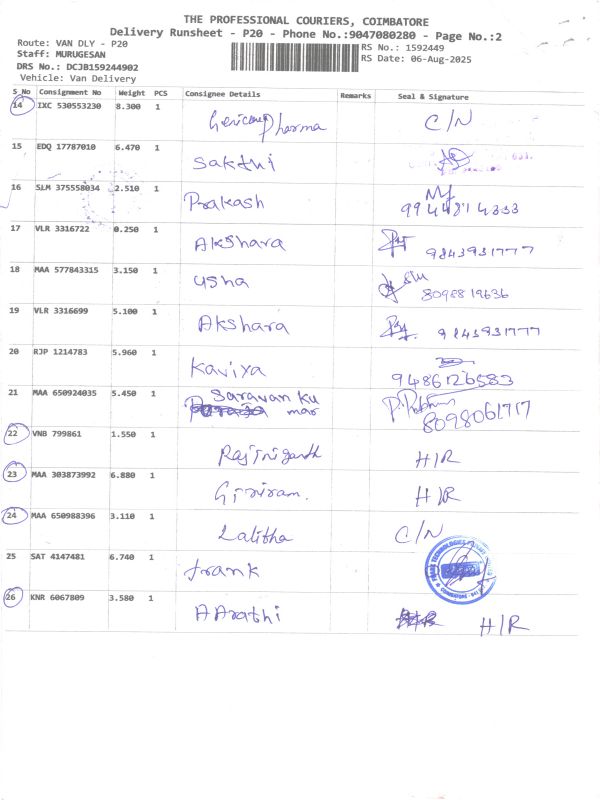 THE PROFESSIONAL COURIERS, COIMBATORE
Delivery Runsheet - P20 - Phone No.:9047080280 - Page No.:2
Route: VAN DLY - P20
RS No.: 1592449
Staff: MURUGESAN
RS Date: 06-Aug-2025
DRS No.: DCJB159244902
Vehicle: Van Delivery
S_No Consignment No Weight PCS Consignee Details Remarks Seal & Signature
14 IXC 530553230 8.300 1 Pharma C/N
15 EDQ 17787010 6.470 1 Sakthi
16 SLM 375558034 2.510 1 Prakash
9944814333
17 VLR 3316722 0.250 1 Akshara 9843931777
18 MAA 577843315 3.150 1 Usha
8098819636
19 VLR 3316699 5.100 1 Akshara 9843931777
20 RJP 1214783 5.960 1 Kaviya
9486126583
21 MAA 650924035 5.450 1 Saravan Ku
mar 8098061717
22 VNB 799861 1.550 1 H/R
23 MAA 303873992 6.880 1 Giriram. H/R
24 MAA 650988396 3.110 1 Lalitha C/N
25 SAT 4147481 6.740 1 Frank
26 KNR 6067809 3.580 1 AArathi H/R